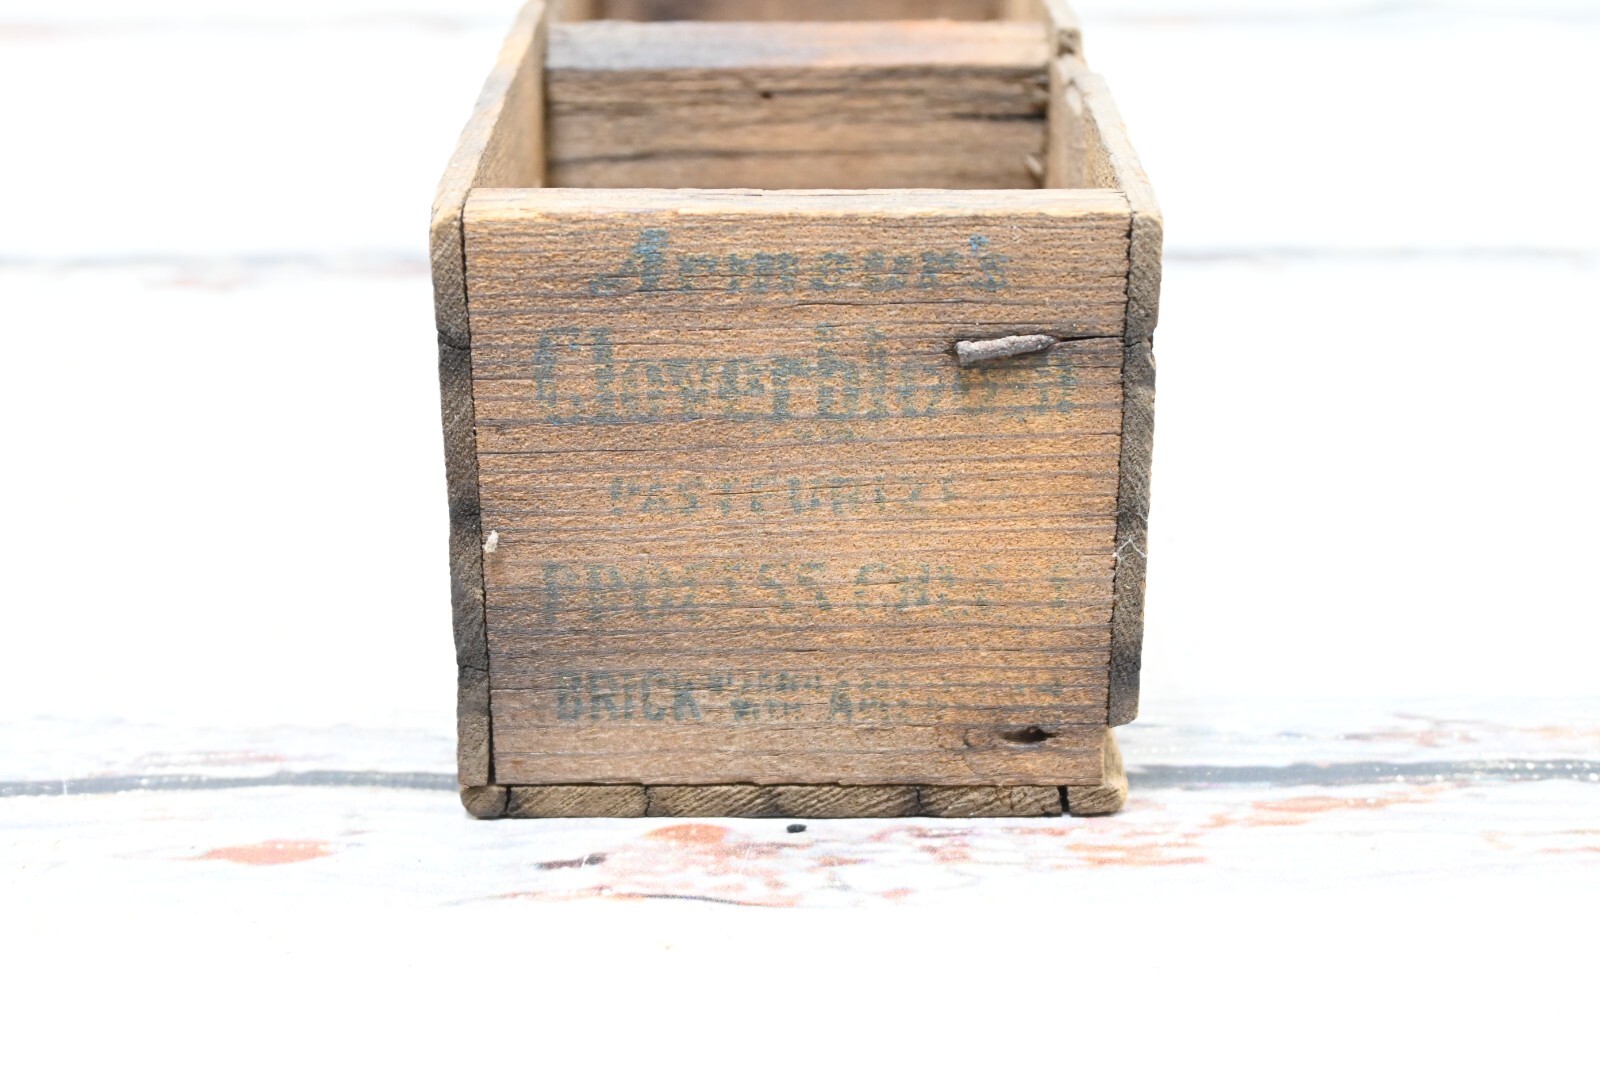 Armour's
Cloverbloom
PASTEURIZED
PROCESS CHEESE
BRICK